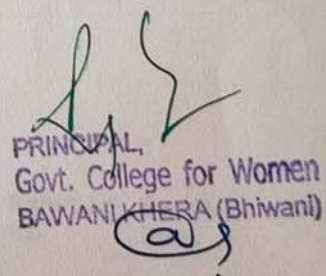 PRINCIPAL,
Govt. College for Women
BAWANI KHERA (Bhiwani)